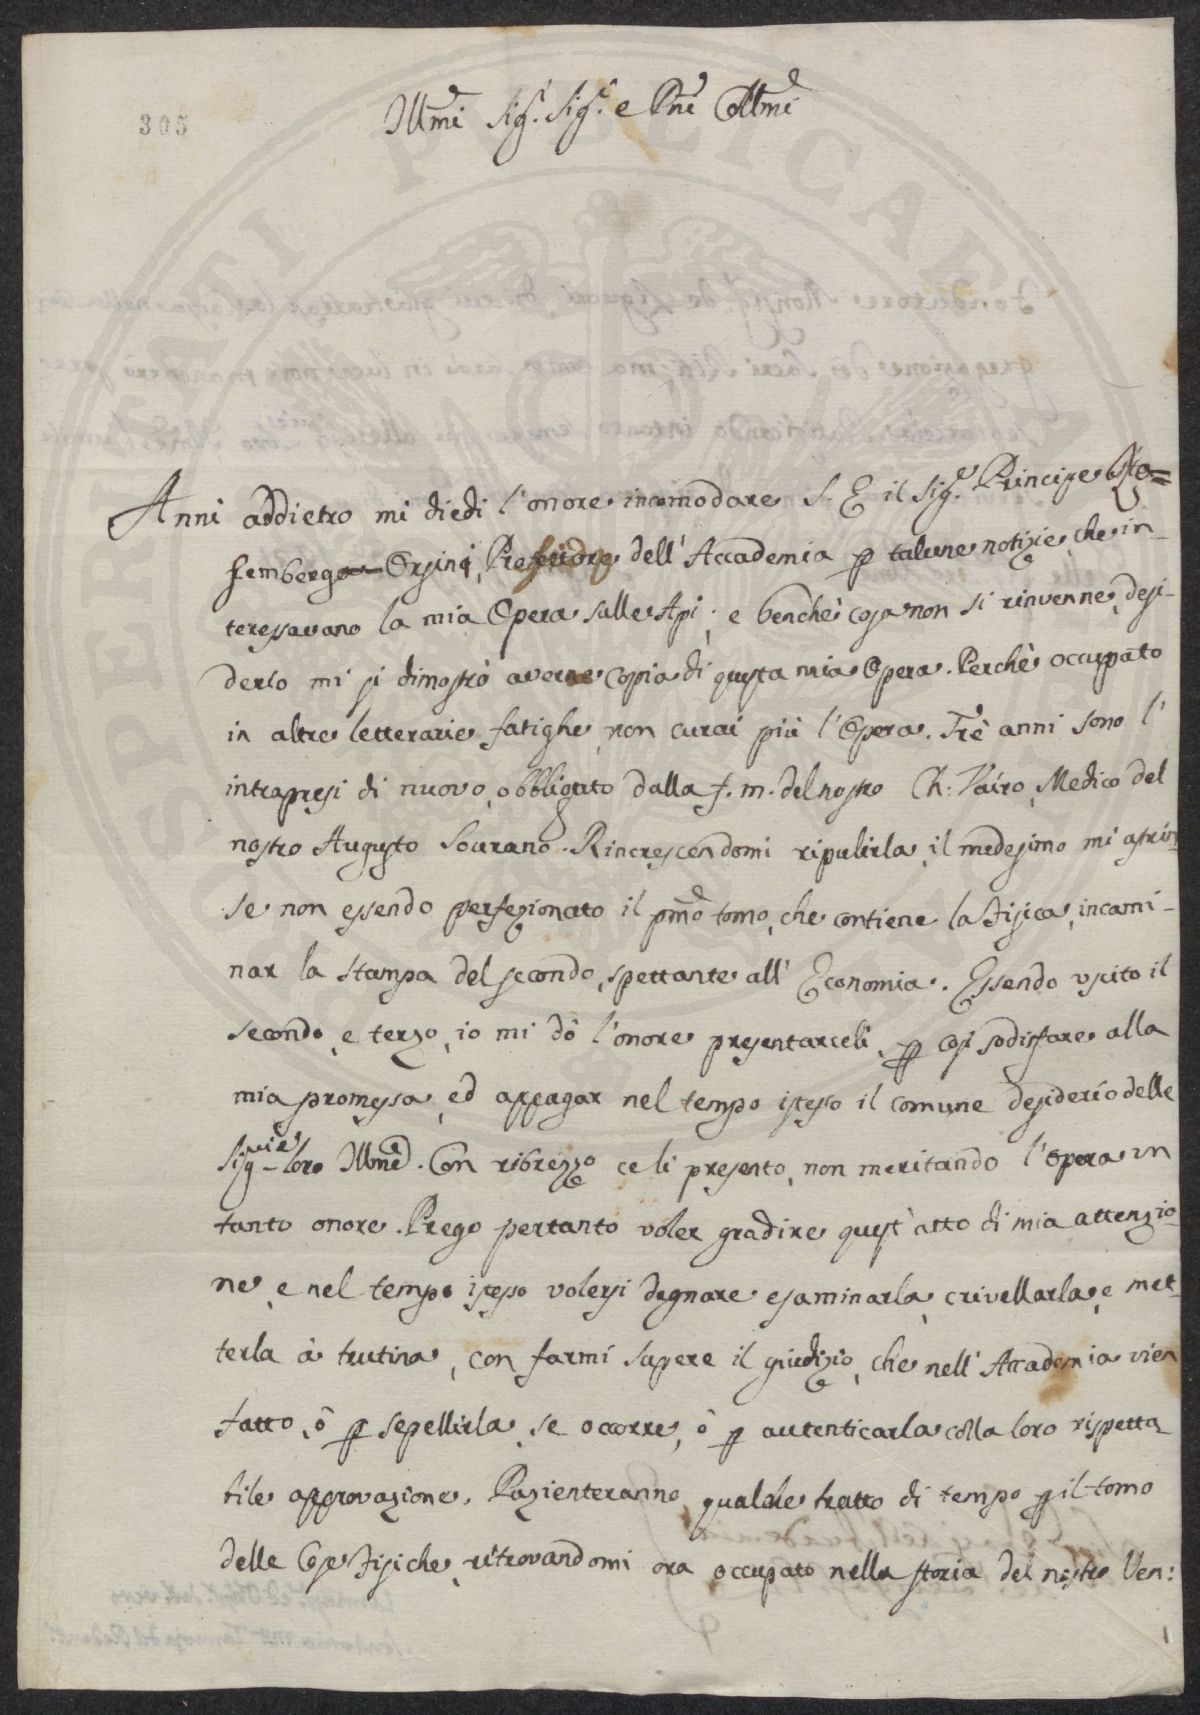 305
Ill.mi Sig.ri Sig.ri e Pni Col.mi
Anni addietro mi diedi l'onore incomodare S. E il Sig.e Principe
femberg Orsini, dell'Accademia p talune notizie, che in-
teressavano la mia Opera sulle Api; e benchè cosa non si rinvenne, desi-
derio mi si dimostrò averne copia di questa mia Opera. Perchè occupato
in altre letterarie fatighe, non curai più l'Opera. Trè anni sono l'
intrapresi di nuovo, obbligato dalla f. m. del nostro Ch: Vairo, Medico del
nostro Augusto Sourano. Rincrescendomi ripulirla, il medesimo mi astrin
se non essendo perfezionato il pmo tomo, che contiene la Fisica, incami-
nar la stampa del secondo, spettante all'Economia. Essendo uscito il
secondo, e terzo, io mi dò l'onore presentarceli, p così sodisfare alla
mia promessa, ed appagar nel tempo istesso il comune desiderio delle
Sig-rie loro Illme. Con ribrezzo ce li presento, non meritando l'opera un
tanto onore. Prego pertanto voler gradire quest'atto di mia attenzio-
ne, e nel tempo istesso volersi degnare esaminarla, crivellarla, e met-
terla à trutina, con farmi sapere il giudizio, che nell'Accademia vien
fatto, ò p sepellirla, se occorre, ò p autenticarla colla loro rispetta-
bile approvazione. Pazienteranno qualche tratto di tempo p il tomo
delle Cose Fisiche, ritrovandomi ora occupato nella storia del nostro Ven:
1